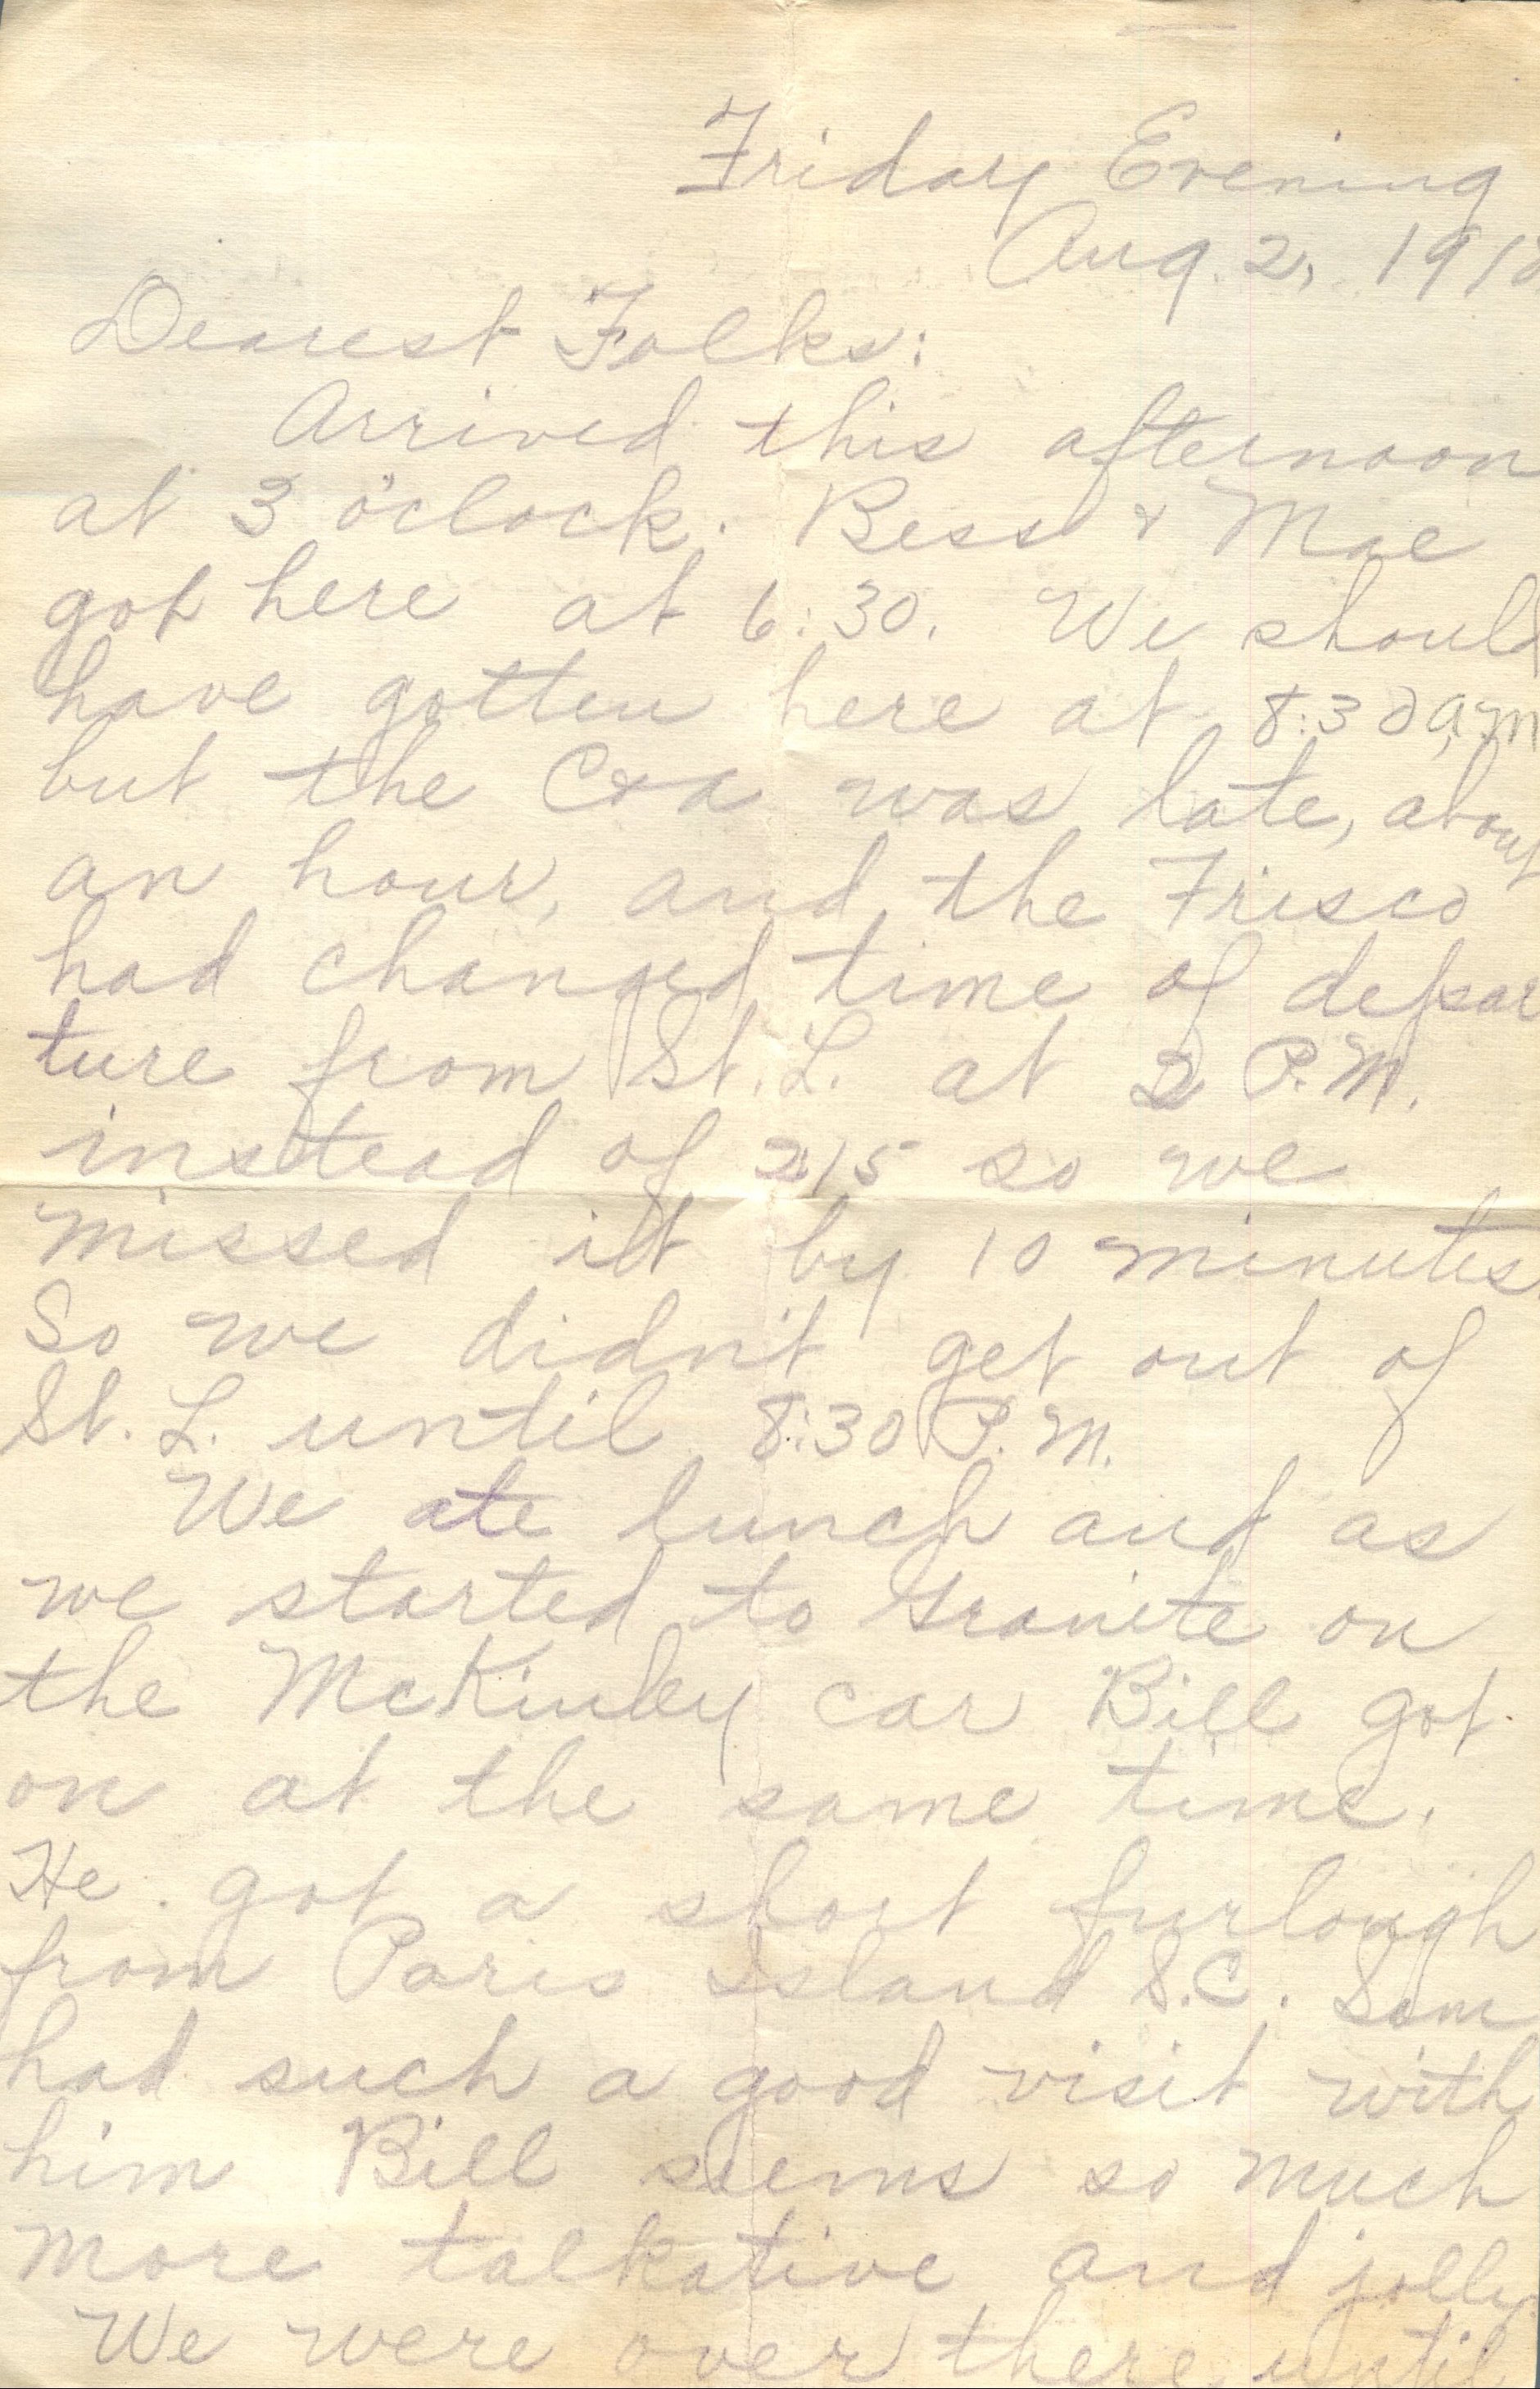 Friday Evening
Aug. 2, 1918
Dearest Folks:
Arrived this afternoon
at 3 o'clock. Bess & Mae
got here at 6:30. We should
have gotten here at 8:30 a.m
but the C&A was late, about
an hour, and the Frisco
had changed time of depar
ture from St. L. at 2 P.M.
instead of 215 so we
missed it by 10 minutes.
So we didn't get out of
St. L. until 8:30 P.M.
We ate lunch and as
we started to Granite on
the McKinley car Bill got
on at the same time.
He got a short furlough
from Paris Island S.C. Sam
had such a good visit with
him Bill seems so much
more talkative and jolly
We were over there until